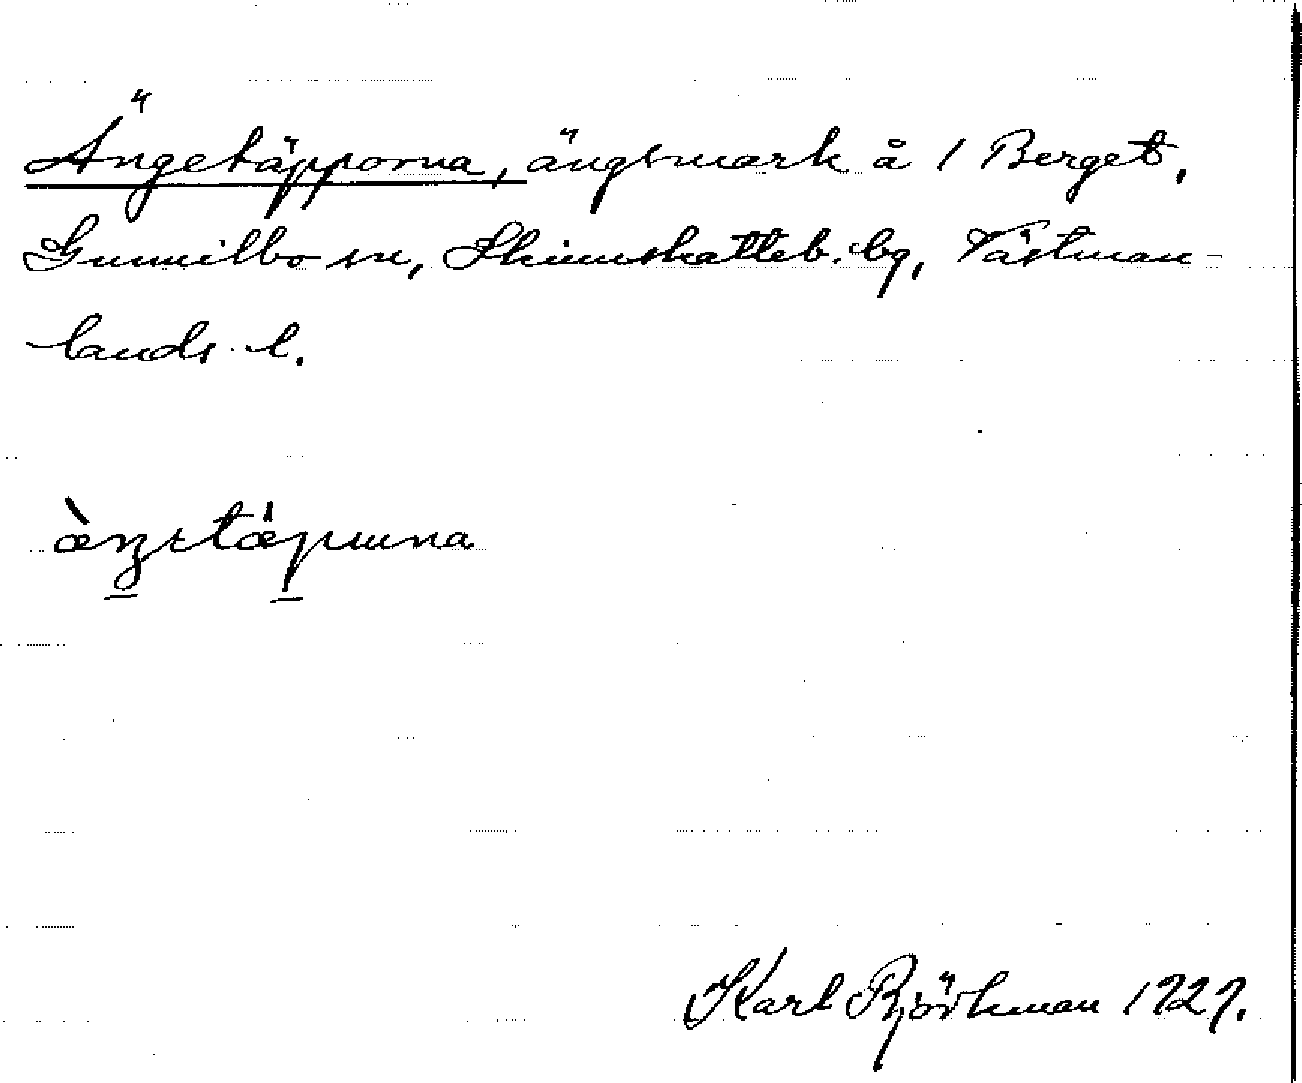 Ängetäpporna, ängsmark å 1 Berget,
Gunnilbo sn, Skinnskatteb. bg, Västman-
lands l.
Karl Björkman 1927.